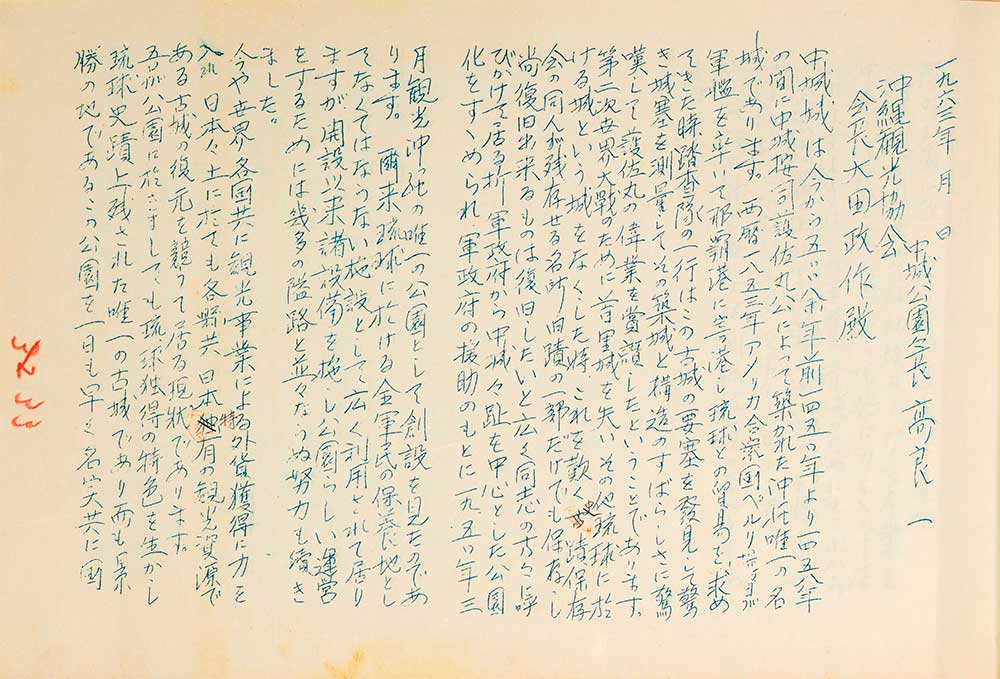 一九六三年 月 日
中城公園々長 高良 一
沖縄観光協会
会長大田政作殿
中城城は今から五〇八余年前一四五〇年より一四五八年
の間に中城按司護佐丸公によって築かれた沖縄唯一の名
城であります。西暦一八五三年アメリカ合衆国ペルリ提督が
軍艦を率いて那覇港に寄港し琉球との貿易を求め
てきた時踏査隊の一行はこの古城の要塞を発見して驚
き城塞を測量してその築城と構造のすばらしさに驚
嘆して護佐丸の偉業を賞讃したということであります。
第二次世界大戦のために首里城を失いその他琉球に於
ける城という城をなくした時、これを歎く 蹟保存
会の同人が残存せる名所旧蹟の一部だけでも保存し
尚復旧出来るものは復旧したいと広く同志の方々に呼
びかけて居る折軍政府から中城々趾を中心とした公園
化をすゝめられ、軍政府の援助のもとに一九五〇年三
月観光沖縄の唯一の公園として創設を見たのであ
ります。爾来琉球に於ける全軍民の保養地とし
てなくてはならない施設として広く利用されて居り
ますが開設以来諸設備を施し公園らしい運営
をするためには幾多の隘路と並々ならぬ努力も続き
ました。
今や世界各国共に観光事業による外貨獲得に力を
入れ日本々土に於ても各県共日本特有の観光資源で
ある古城の復元を競って居る現状であります。
吾が公園に於きましても琉球独得の特色を生かし
琉球史蹟上残された唯一の古城であり而も景
勝の地であるこの公園を一日も早く名実共に国